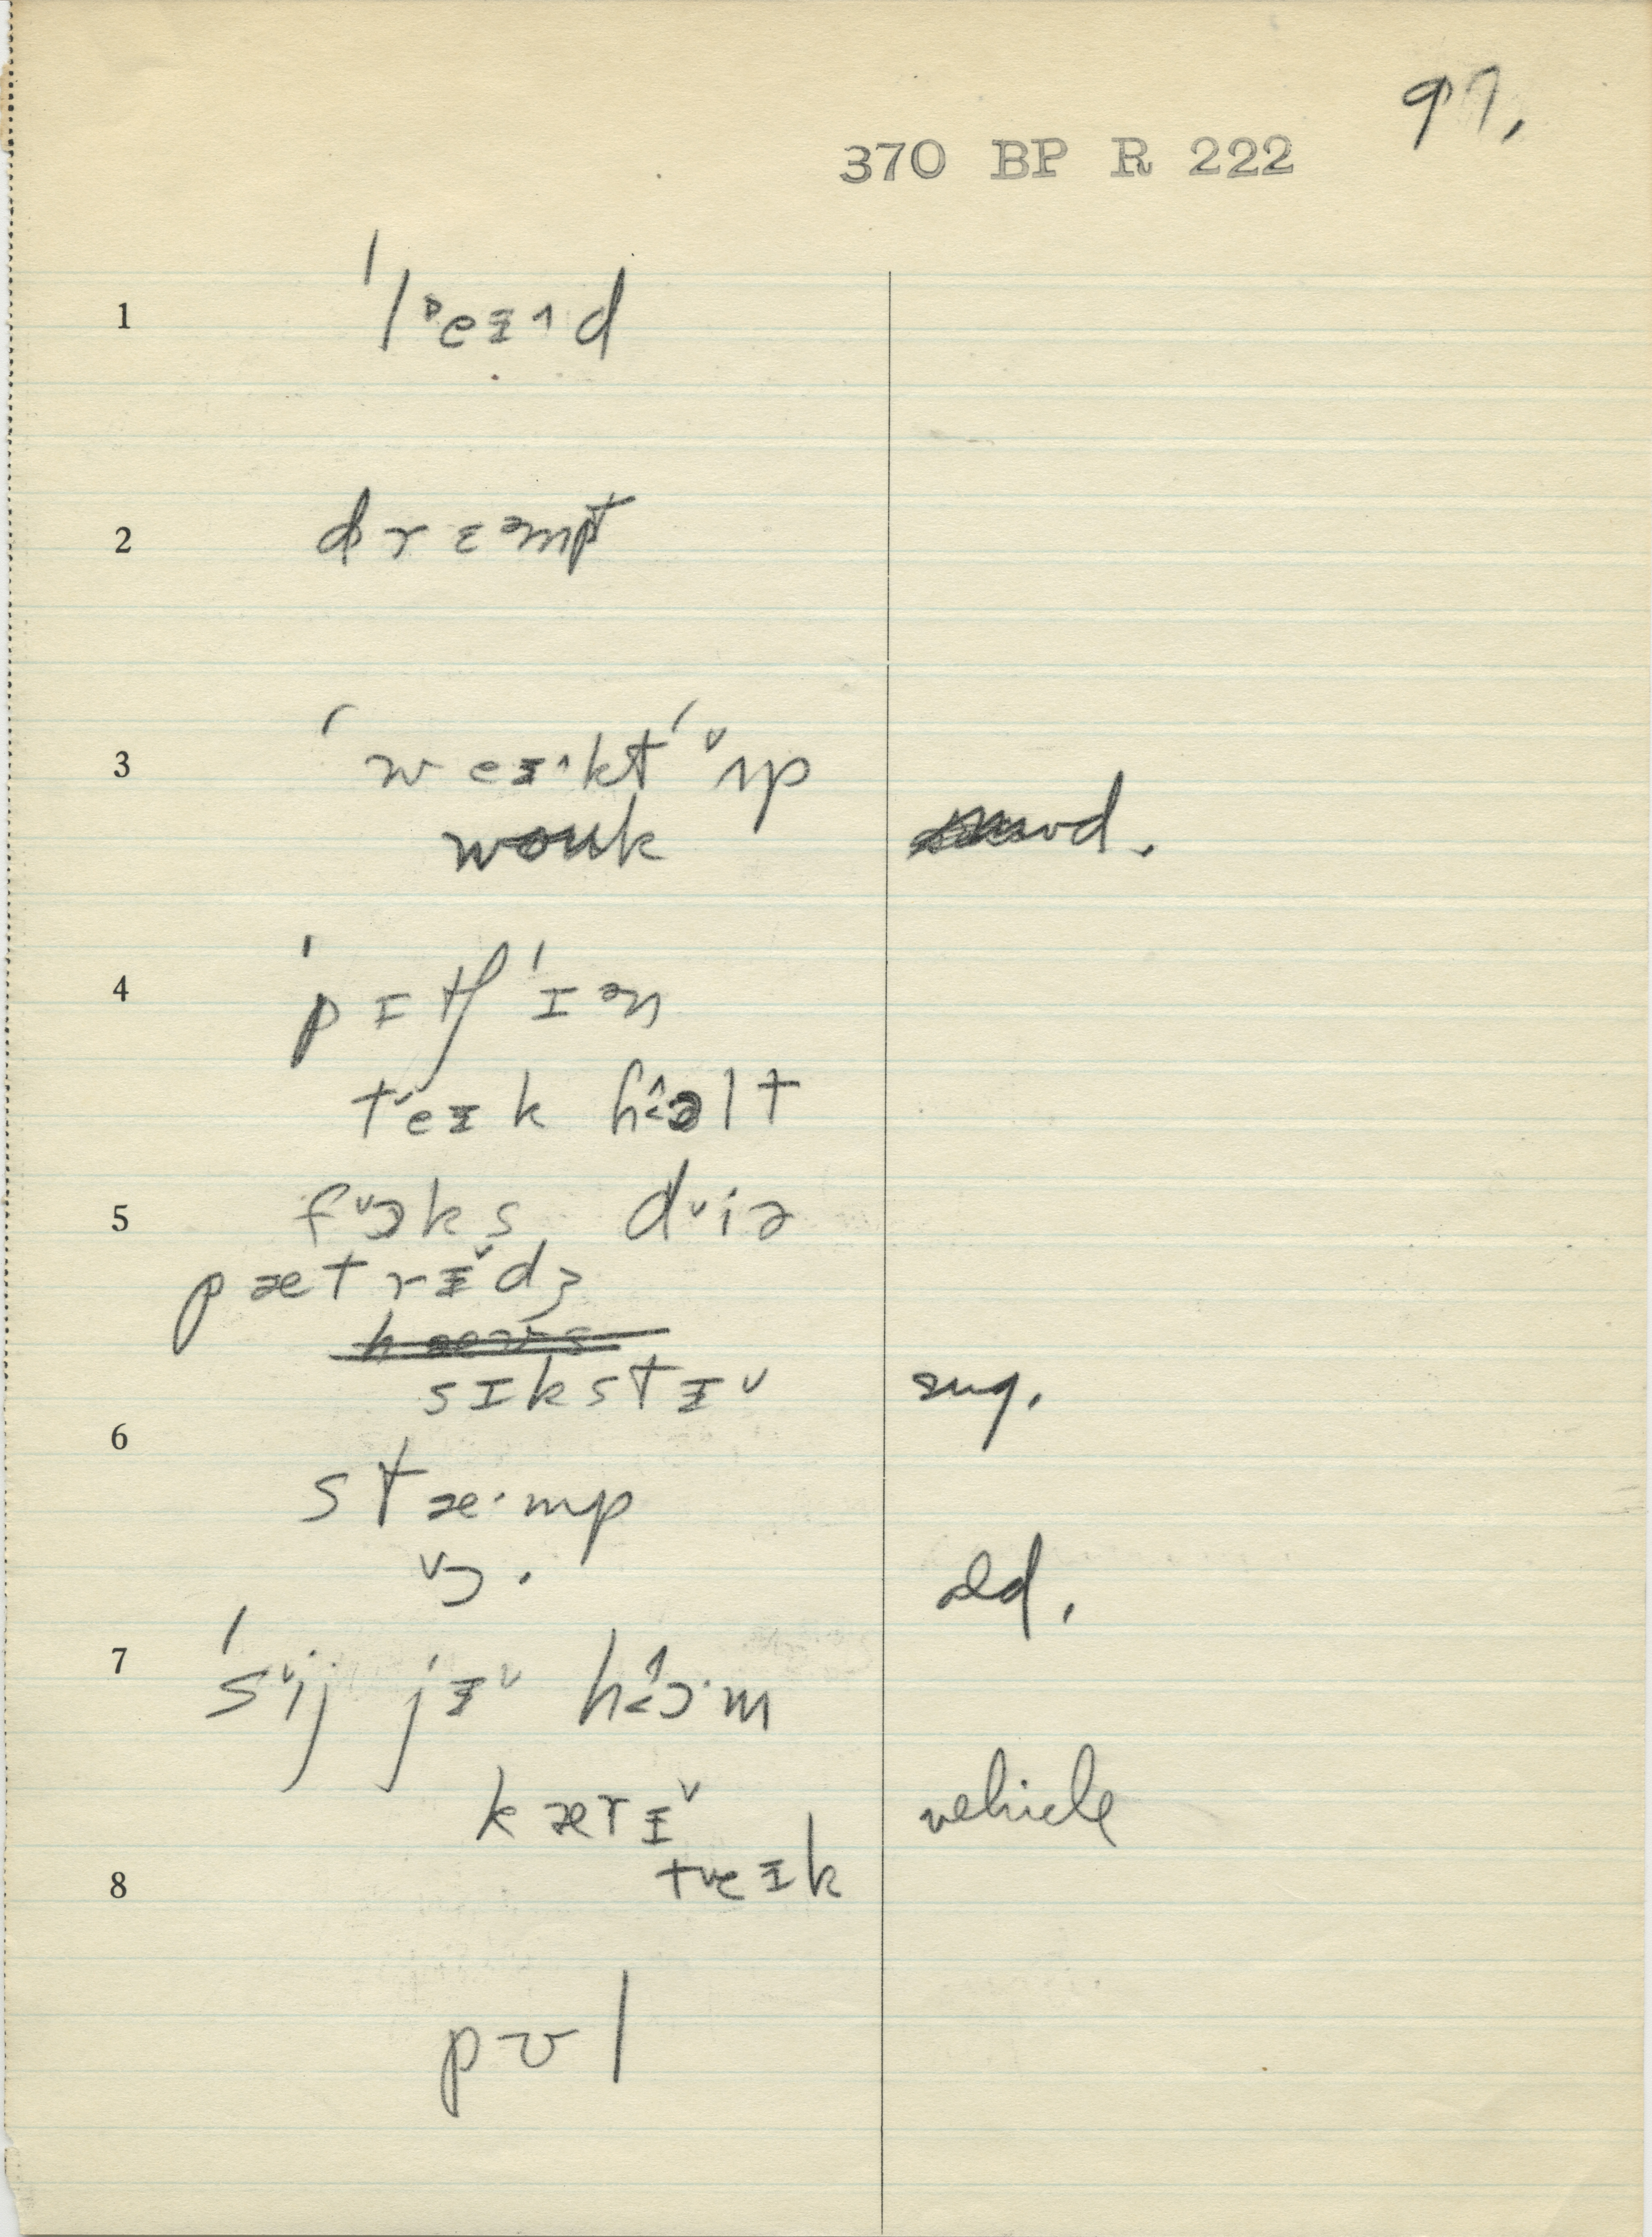 97.
370 BP R 222
1 ˈlᵊeɪ˄d
2 drɛᵊmpt
3 ˈweɪ˄ktˈ ˅ʌp
woʊk
4 ˈpɪtʃˈɪən
teɪk hɜ˄əlt
5 f˅ɔks d˅iə
pætrɪ˅dʒ
sɪkstɪ˅ sug.
6 stæ·mp
˅ɔ·
7 ˈs˅ij jɪ˅ hɜ˄ɔ·m
kærɪ˅ vehicle
8 t˅eɪk
pʊl